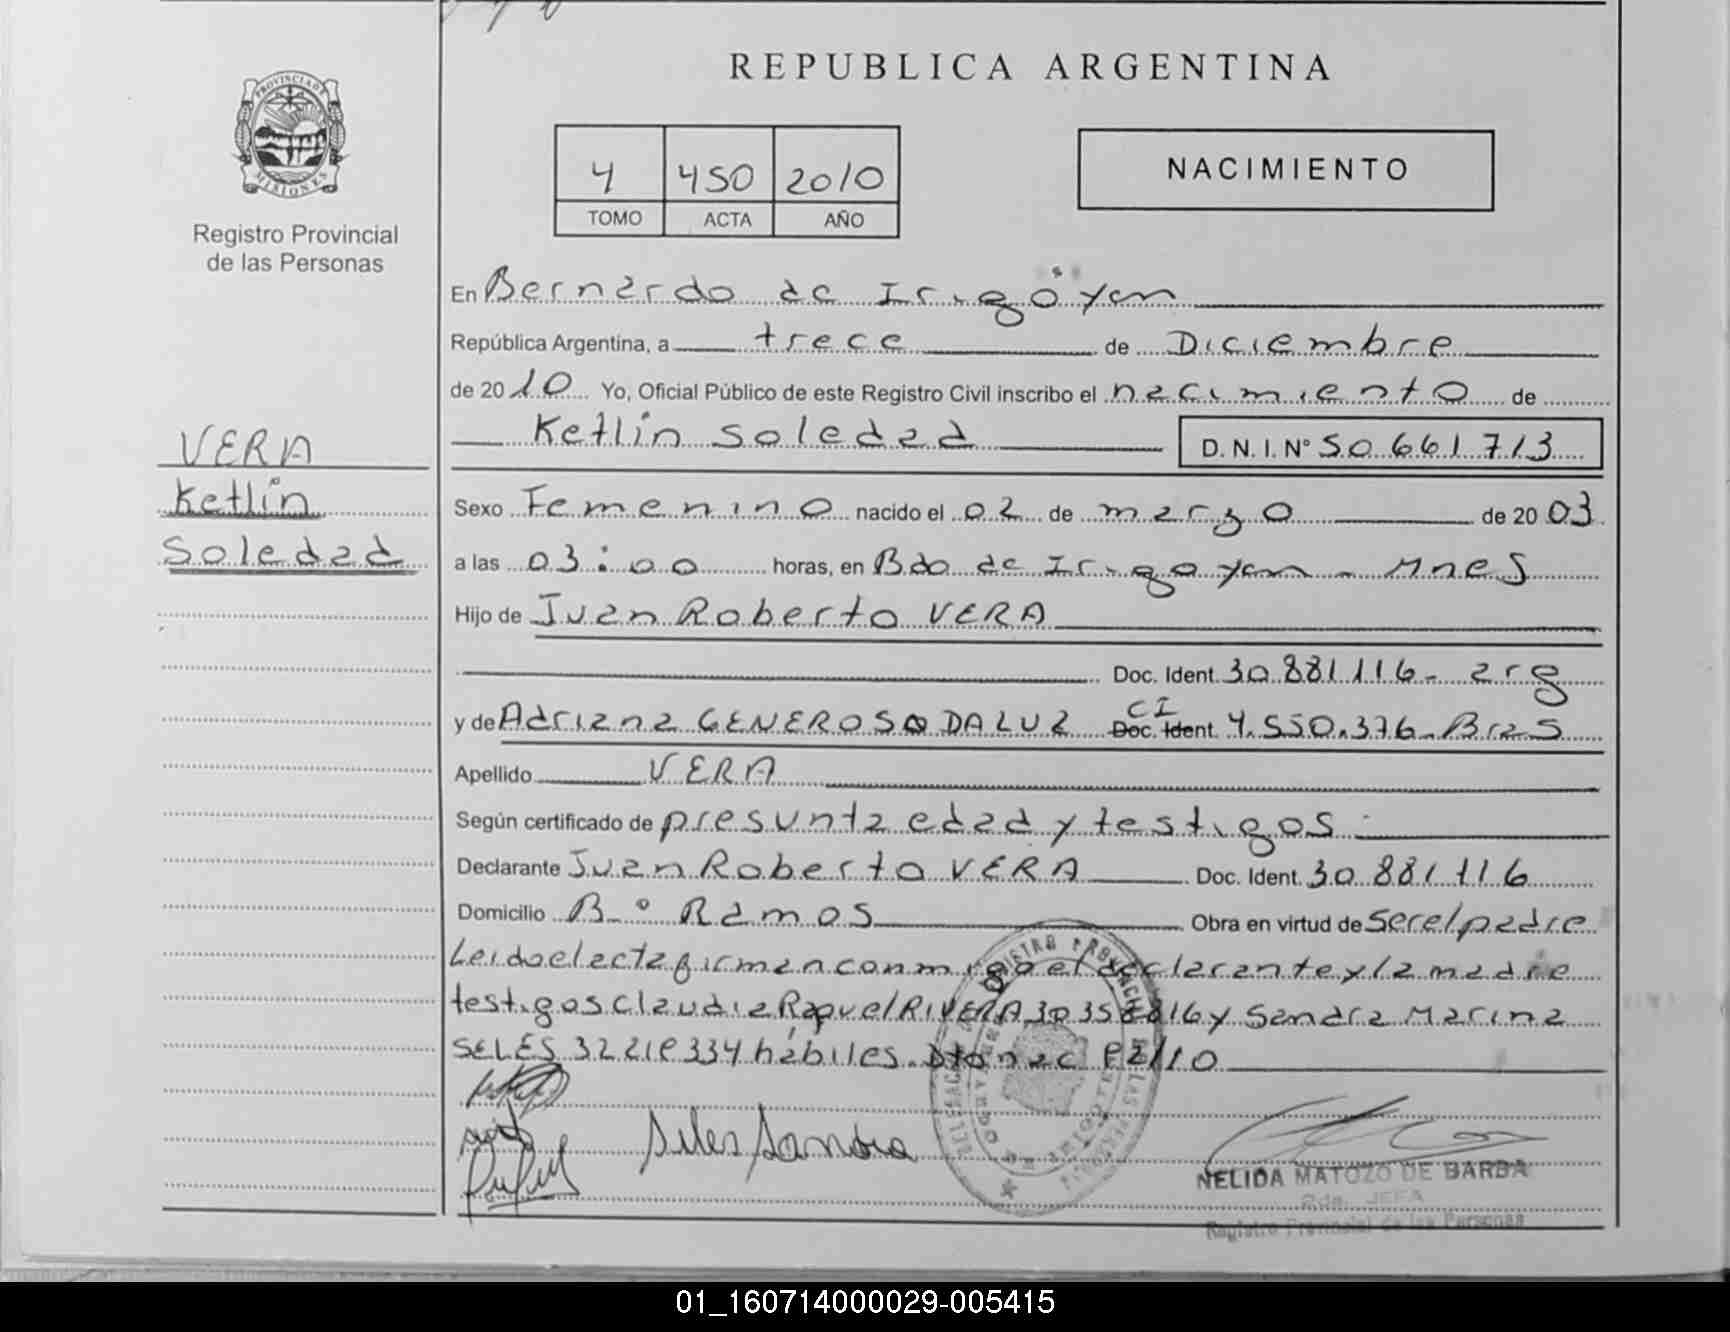 PROVINCIA DE
MISIONES
Registro Provincial
de las Personas
VERA
Ketlin
Soledad
REPUBLICA ARGENTINA
4 450 2010
TOMO ACTA AÑO
NACIMIENTO
En Bernardo de Irigoyen
República Argentina, a trece de Diciembre
de 2010 Yo, Oficial Público de este Registro Civil inscribo el nacimiento de
Ketlin Soledad D. N. I. N° 50.661.713
Sexo Femenino nacido el 02 de marzo de 2003
a las 03:00 horas, en Bdo de Irigoyen - Mnes
Hijo de Juan Roberto VERA
Doc. Ident. 30.881.116- arg
CI
y de Adriana GENEROSO DA LUZ Doc. Ident. 4.550.376-Bras
Apellido VERA
Según certificado de presunta edad y testigos
Declarante Juan Roberto VERA Doc. Ident. 30.881.116
Domicilio B° Ramos Obra en virtud de ser el padre
Leido el acta firman conmigo el declarante y la madre
testigos Claudia Raquel RIVERA y Sandra Marina
SELES hábiles.
Siles Sandra
NELIDA MATOZO DE BARBA
2da. JEFA
Registro Provincial de las Personas
01_160714000029-005415